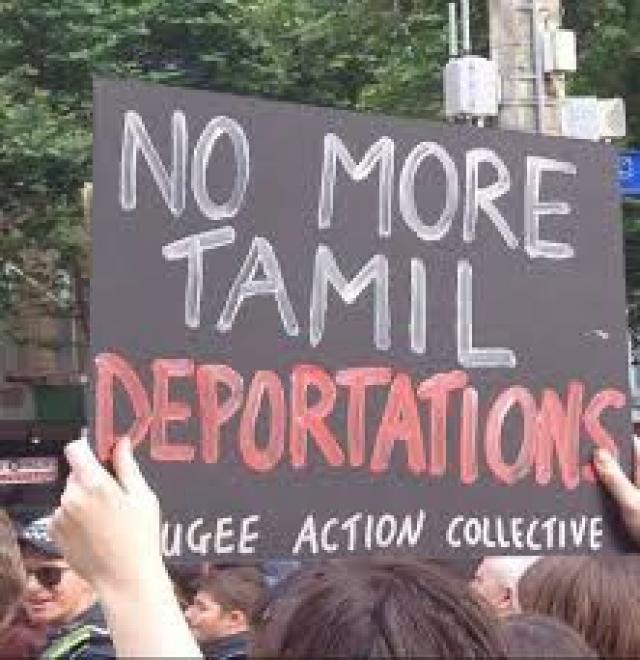 NO MORE
TAMIL
DEPORTATIONS
UGEE ACTION COLLECTIVE